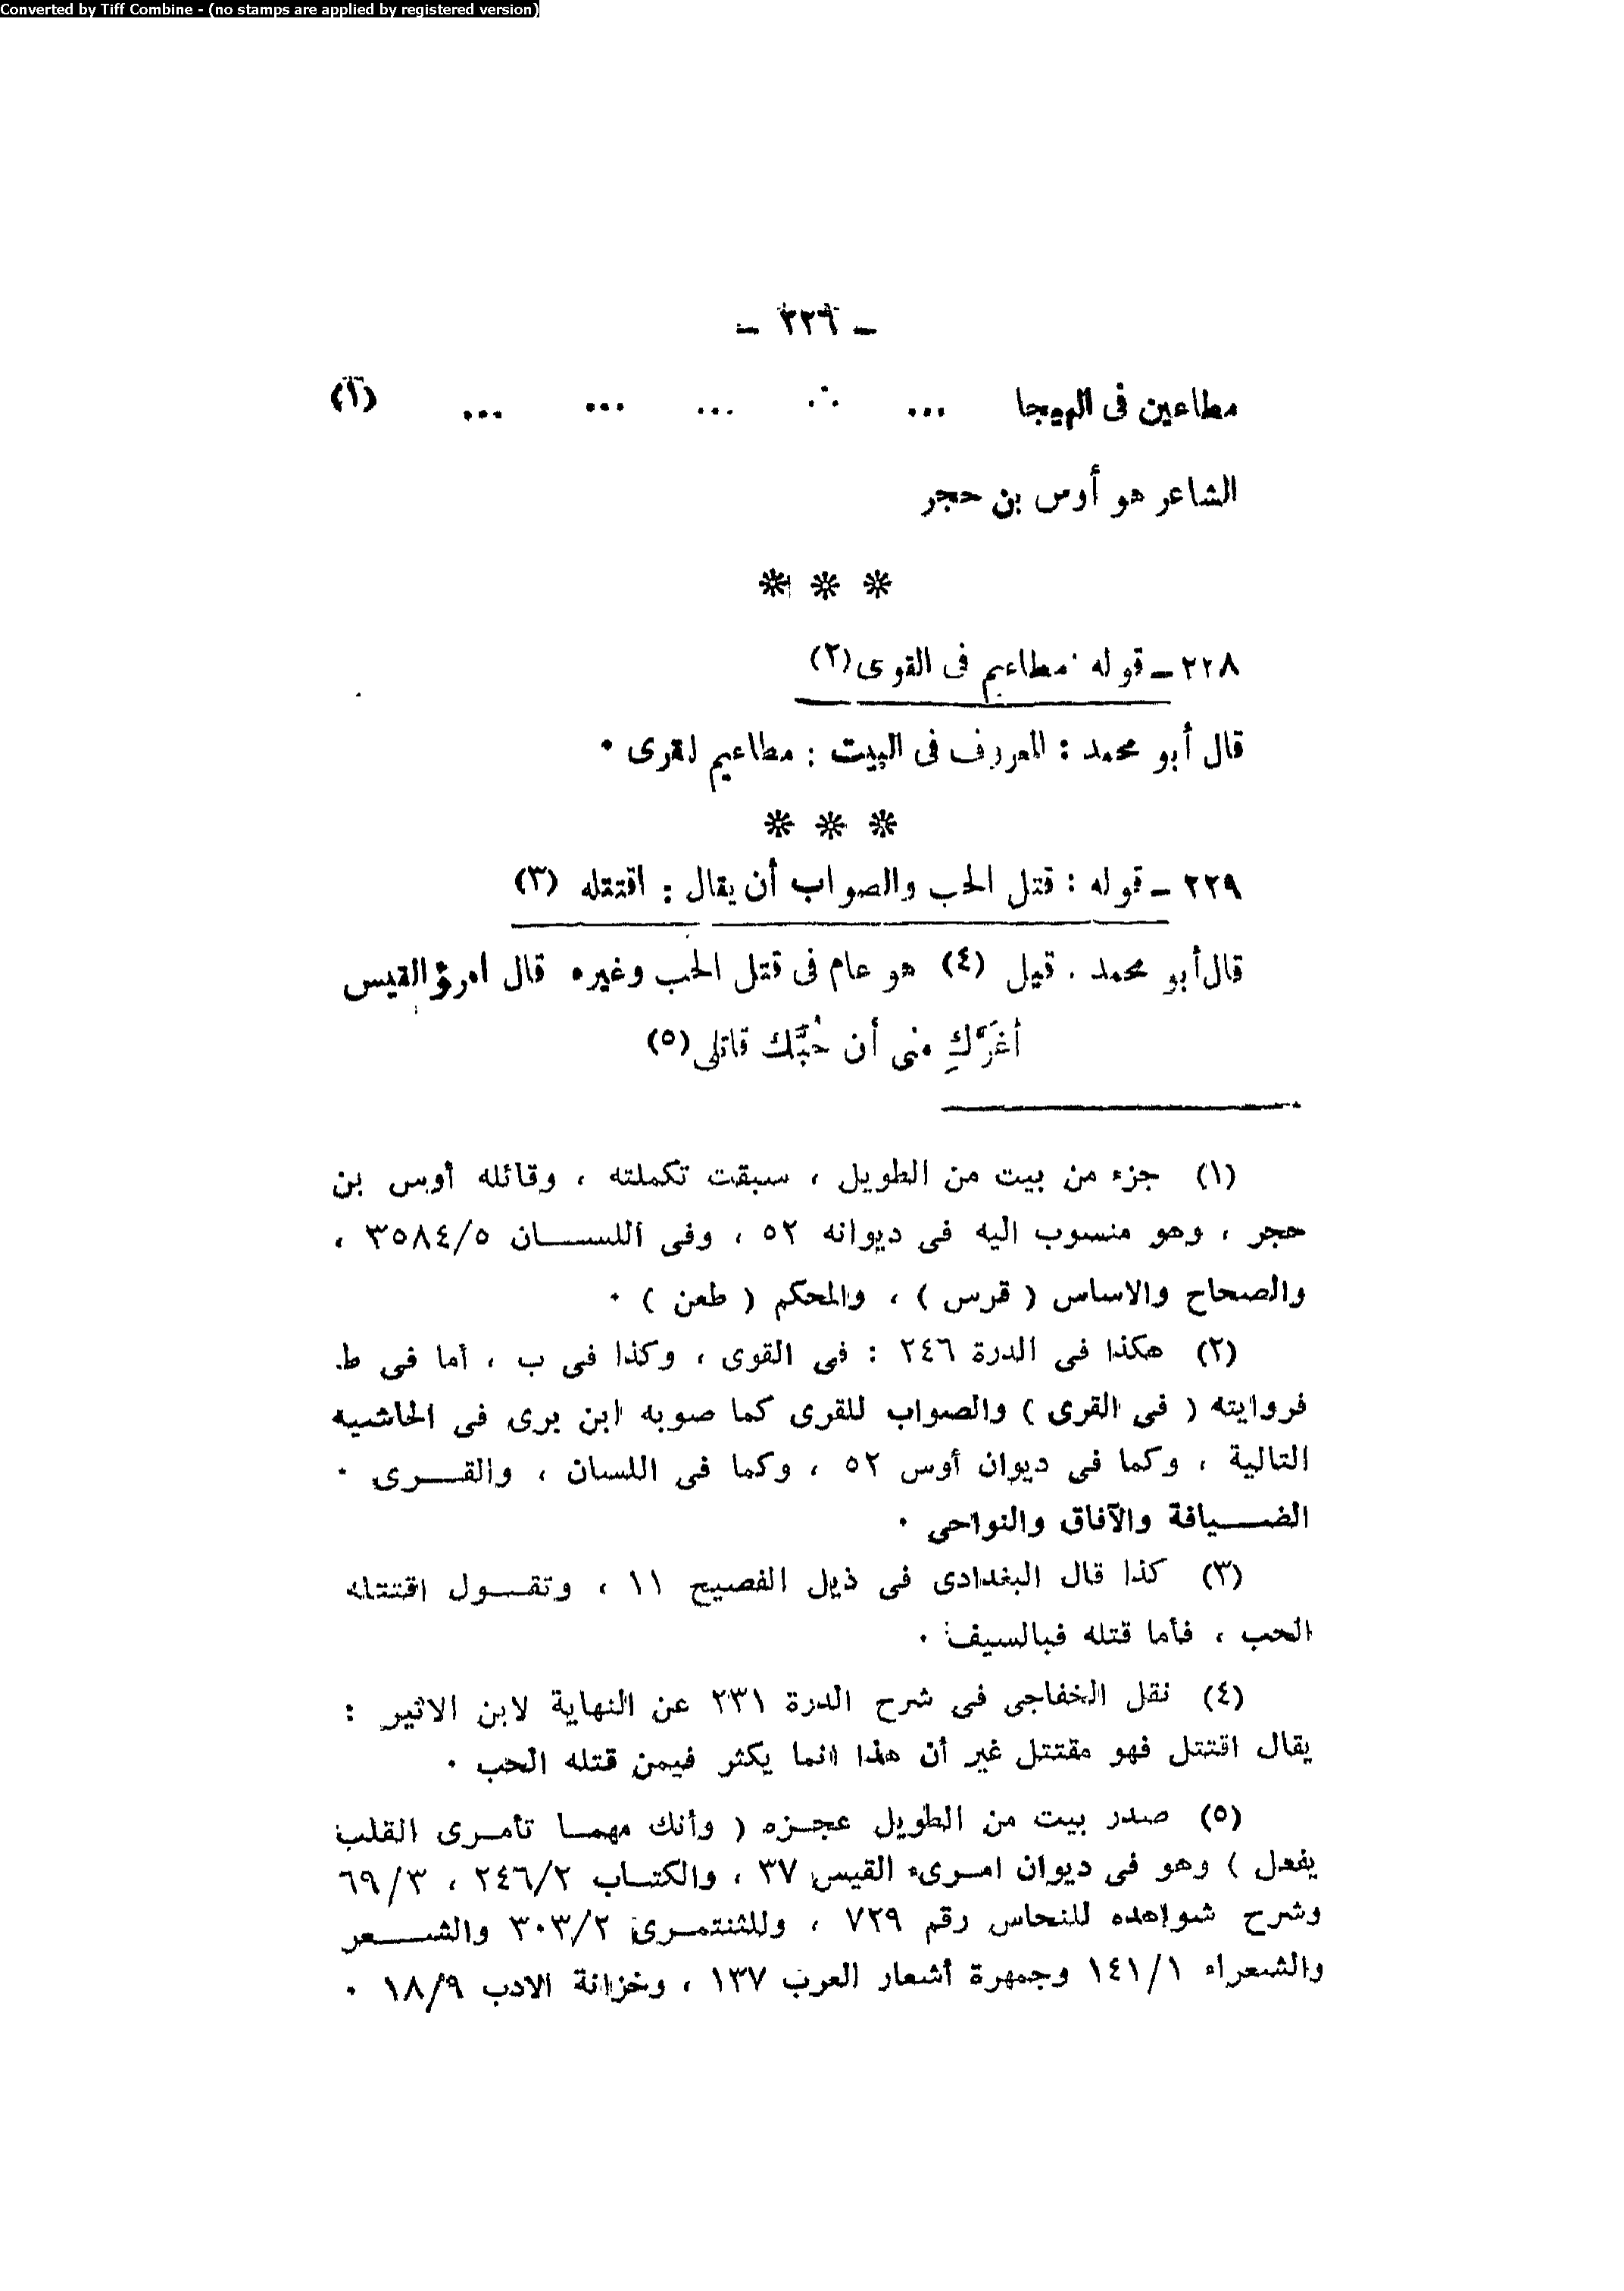 Converted by Tiff Combine - (no stamps are applied by registered version)
– ٢٢٦ –
مطاعين فى الهيجا ... ... ... ... ... (١)
الشاعر هو أوس بن حجر
* * *
٢٢٨ – قوله مطاعيم فى القوى (٢)
قال أبو محمد : المعروف فى البيت : مطاعيم لقرى ٠
* * *
٢٢٩ – قوله : قتل الحب والصواب أن يقال : اقتتله (٣)
قال أبو محمد . قيل (٤) هو عام فى قتل الحب وغيره قال امرؤ القيس
أغَرَّكِ منى أن حُبَّك قاتلى (٥)
(١) جزء من بيت من الطويل ، سبقت تكملته ، وقائله أوس بن
حجر ، وهو منسوب اليه فى ديوانه ٥٢ ، وفى اللسان ٣٥٨٤/٥ ،
والصحاح والاساس ( قرس ) ، والمحكم ( طعن ) ٠
(٢) هكذا فى الدرة ٢٤٦ : فى القوى ، وكذا فى ب ، أما فى ط
فروايته ( فى القرى ) والصواب للقرى كما صوبه ابن برى فى الحاشية
التالية ، وكما فى ديوان أوس ٥٢ ، وكما فى اللسان ، والقرى ٠
الضيافة والآفاق والنواحى ٠
(٣) كذا قال البغدادى فى ذيل الفصيح ١١ ، وتقول اقتتله
الحب ، فأما قتله فبالسيف ٠
(٤) نقل الخفاجى فى شرح الدرة ٢٣١ عن النهاية لابن الاثير :
يقال اقتتل فهو مقتتل غير أن هذا انما يكثر فيمن قتله الحب ٠
(٥) صدر بيت من الطويل عجزه ( وأنك مهما تأمرى القلب
يفعل ) وهو فى ديوان امرىء القيس ٣٧ ، والكتاب ٢٤٦/٢ ، ٦٩/٣
وشرح شواهده للنحاس رقم ٧٢٩ ، وللشنتمرى ٣٠٣/٢ والشعر
والشعراء ١٤١/١ وجمهرة أشعار العرب ١٣٧ ، وخزانة الادب ١٨/٩ ٠